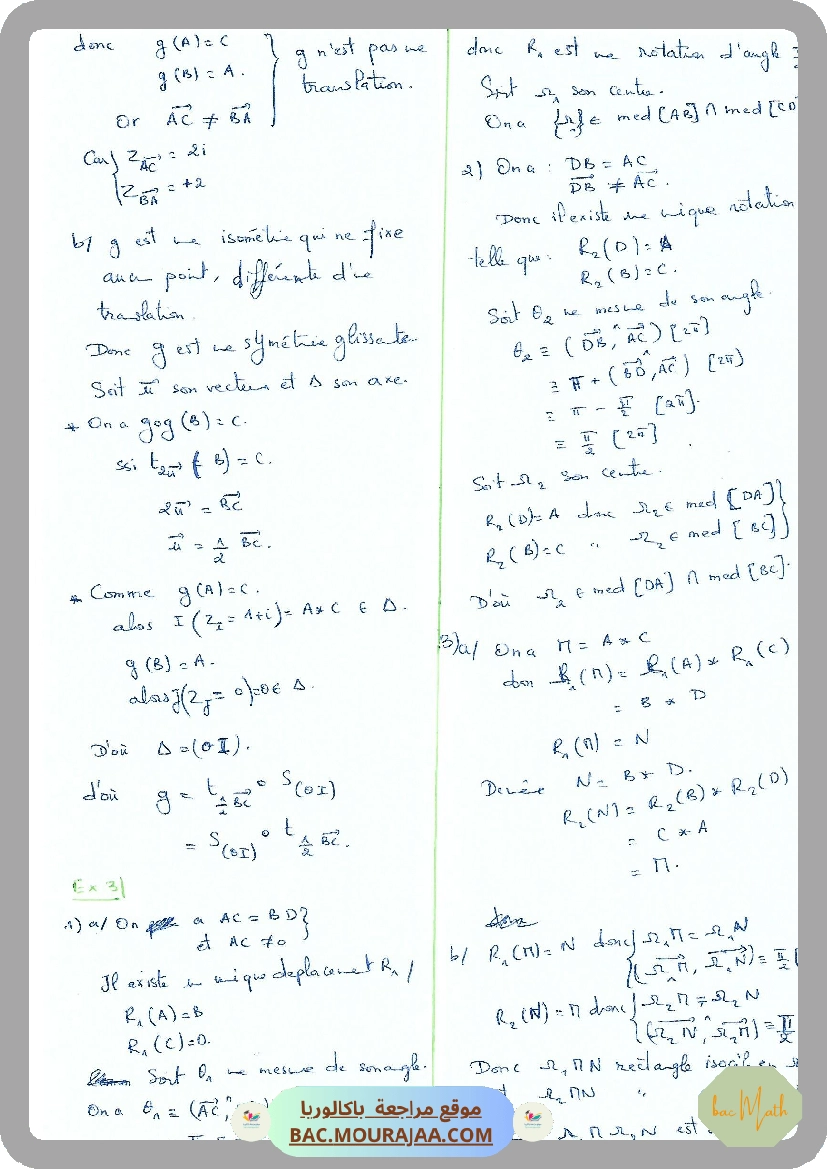 donc g(A)=C
g(B)=A.
g n'est pas une
translation.
Or AC ≠ BA
Car Z AC = 2i
Z BA = +2
b/ g est une isométrie qui ne fixe
aucun point, différente d'une
translation.
Donc g est une symétrie glissante
Soit u son vecteur et Δ son axe.
* On a gog(B)=C.
ssi t2u(B)=C.
2u = BC
u = 1/2 BC.
* Comme g(A)=C.
alors I(Z_I = 1+i)= A*C ∈ Δ.
g(B)=A.
alors J(Z_J = 0)=O∈ Δ.
D'où Δ=(OI).
d'où g = t 1/2 BC o S(OI)
= S(OI) o t 1/2 BC.
Ex 3/
1) a/ On a AC = BD
et AC ≠ 0
Il existe un unique deplacement R₁ /
R₁(A)=B
R₁(C)=D.
Soit θ₁ une mesure de son angle.
On a θ₁ ≡ (AC,
donc R₁ est une rotation d'angle
Soit Ω₁ son centre.
On a {Ω₁} ∈ med[AB] ∩ med[CD
2) On a : DB = AC
DB ≠ AC.
Donc il existe une unique rotation
telle que: R₂(D)=A
R₂(B)=C.
Soit θ₂ une mesure de son angle.
θ₂ ≡ (DB, AC) [2π]
≡ π + (BD, AC) [2π]
≡ π - π/2 [2π].
≡ π/2 [2π].
Soit Ω₂ son centre.
R₂(D)=A donc Ω₂ ∈ med [DA]
R₂(B)=C " Ω₂ ∈ med [BC]
D'où Ω₂ ∈ med [DA] ∩ med [BC].
3)a/ On a M = A*C
don R₁(M) = R₁(A) * R₁(C)
= B * D
R₁(M) = N
De même N = B * D.
R₂(N) = R₂(B) * R₂(D)
= C * A
= M.
b/ R₁(M)=N donc Ω₁M = Ω₁N
(Ω₁M, Ω₁N) ≡ π/2
R₂(N)=M donc Ω₂M = Ω₂N
(Ω₂N, Ω₂M) ≡ π/2
Donc Ω₁MN rectangle isocèle en
Ω₂MN "
Ω₁MΩ₂N est
موقع مراجعة باكالوريا
BAC.MOURAJAA.COM
bac Math